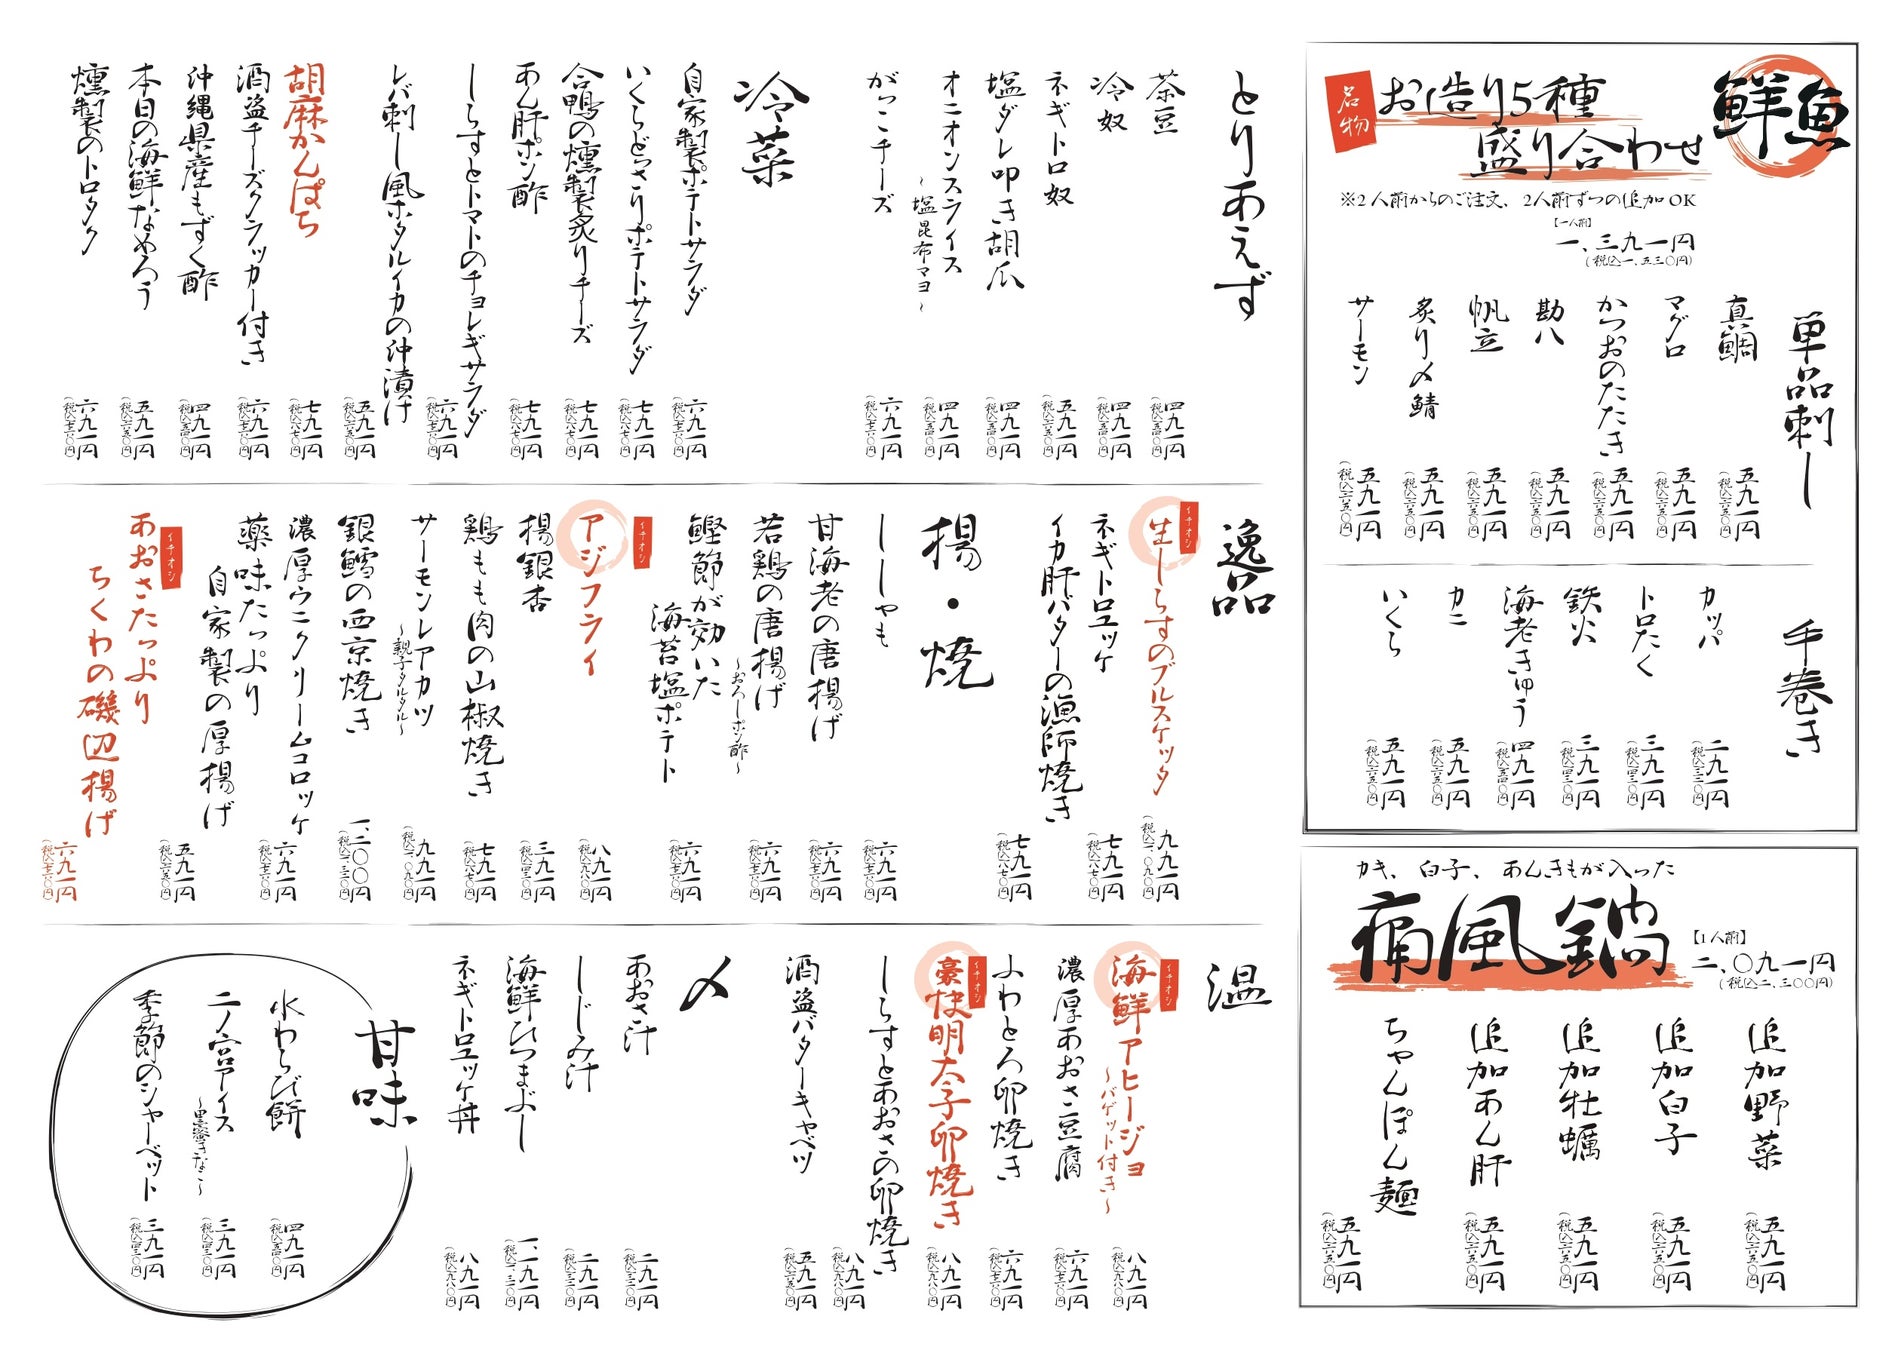 鮮魚
名物
お造り5種
盛り合わせ
※2人前からのご注文、2人前ずつの追加OK
【一人前】
一、三九一円
(税込一、五三〇円)
単品刺し
真鯛
五九一円
(税込六五〇円)
マグロ
五九一円
(税込六五〇円)
かつおのたたき
五九一円
(税込六五〇円)
勘八
五九一円
(税込六五〇円)
帆立
五九一円
(税込六五〇円)
炙り〆鯖
五九一円
(税込六五〇円)
サーモン
五九一円
(税込六五〇円)
手巻き
カッパ
二九一円
(税込三二〇円)
トロたく
三九一円
(税込四三〇円)
鉄火
三九一円
(税込四三〇円)
海老きゅう
四九一円
(税込五四〇円)
カニ
五九一円
(税込六五〇円)
いくら
五九一円
(税込六五〇円)
カキ、白子、あんきもが入った
痛風鍋
【1人前】
二、〇九一円
(税込二、三〇〇円)
追加野菜
五九一円
(税込六五〇円)
追加白子
五九一円
(税込六五〇円)
追加牡蠣
五九一円
(税込六五〇円)
追加あん肝
五九一円
(税込六五〇円)
ちゃんぽん麺
五九一円
(税込六五〇円)
とりあえず
茶豆
四九一円
(税込五四〇円)
冷奴
四九一円
(税込五四〇円)
ネギトロ奴
五九一円
(税込六五〇円)
塩ダレ叩き胡瓜
四九一円
(税込五四〇円)
オニオンスライス
~塩昆布マヨ~
四九一円
(税込五四〇円)
がっこチーズ
六九一円
(税込七六〇円)
冷菜
自家製ポテトサラダ
六九一円
(税込七六〇円)
いくらどっさりポテトサラダ
七九一円
(税込八七〇円)
合鴨の燻製炙りチーズ
七九一円
(税込八七〇円)
あん肝ポン酢
七九一円
(税込八七〇円)
しらすとトマトのチョレギサラダ
六九一円
(税込七六〇円)
レバ刺し風ホタルイカの沖漬け
五九一円
(税込六五〇円)
胡麻かんぱち
七九一円
(税込八七〇円)
酒盗チーズクラッカー付き
六九一円
(税込七六〇円)
沖縄県産もずく酢
四九一円
(税込五四〇円)
本日の海鮮なめろう
五九一円
(税込六五〇円)
燻製のトロタク
六九一円
(税込七六〇円)
逸品
イチオシ
生しらすのブルスケッタ
九九一円
(税込一、〇九〇円)
ネギトロユッケ
七九一円
(税込八七〇円)
イカ肝バターの漁師焼き
七九一円
(税込八七〇円)
揚・焼
ししゃも
六九一円
(税込七六〇円)
甘海老の唐揚げ
六九一円
(税込七六〇円)
若鶏の唐揚げ
~おろしポン酢~
六九一円
(税込七六〇円)
鰹節が効いた
海苔塩ポテト
六九一円
(税込七六〇円)
イチオシ
アジフライ
八九一円
(税込九八〇円)
揚銀杏
三九一円
(税込四三〇円)
鶏もも肉の山椒焼き
七九一円
(税込八七〇円)
サーモンレアカツ
~親子タルタル~
九九一円
(税込一、〇九〇円)
銀鱈の西京焼き
一、二〇〇円
(税込一、三二〇円)
濃厚ウニクリームコロッケ
六九一円
(税込七六〇円)
薬味たっぷり
自家製の厚揚げ
五九一円
(税込六五〇円)
イチオシ
あおさたっぷり
ちくわの磯辺揚げ
六九一円
(税込七六〇円)
温
イチオシ
海鮮アヒージョ
~バゲット付き~
八九一円
(税込九八〇円)
濃厚あおさ豆腐
六九一円
(税込七六〇円)
ふわとろ卵焼き
六九一円
(税込七六〇円)
イチオシ
豪快明太子卵焼き
八九一円
(税込九八〇円)
しらすとあおさの卵焼き
八九一円
(税込九八〇円)
酒盗バターキャベツ
五九一円
(税込六五〇円)
〆
あおさ汁
二九一円
(税込三二〇円)
しじみ汁
二九一円
(税込三二〇円)
海鮮ひつまぶし
一、一九一円
(税込一、三一〇円)
ネギトロユッケ丼
八九一円
(税込九八〇円)
甘味
水わらび餅
四九一円
(税込五四〇円)
二ノ宮アイス
~黒蜜きなこ~
三九一円
(税込四三〇円)
季節のシャーベット
三九一円
(税込四三〇円)